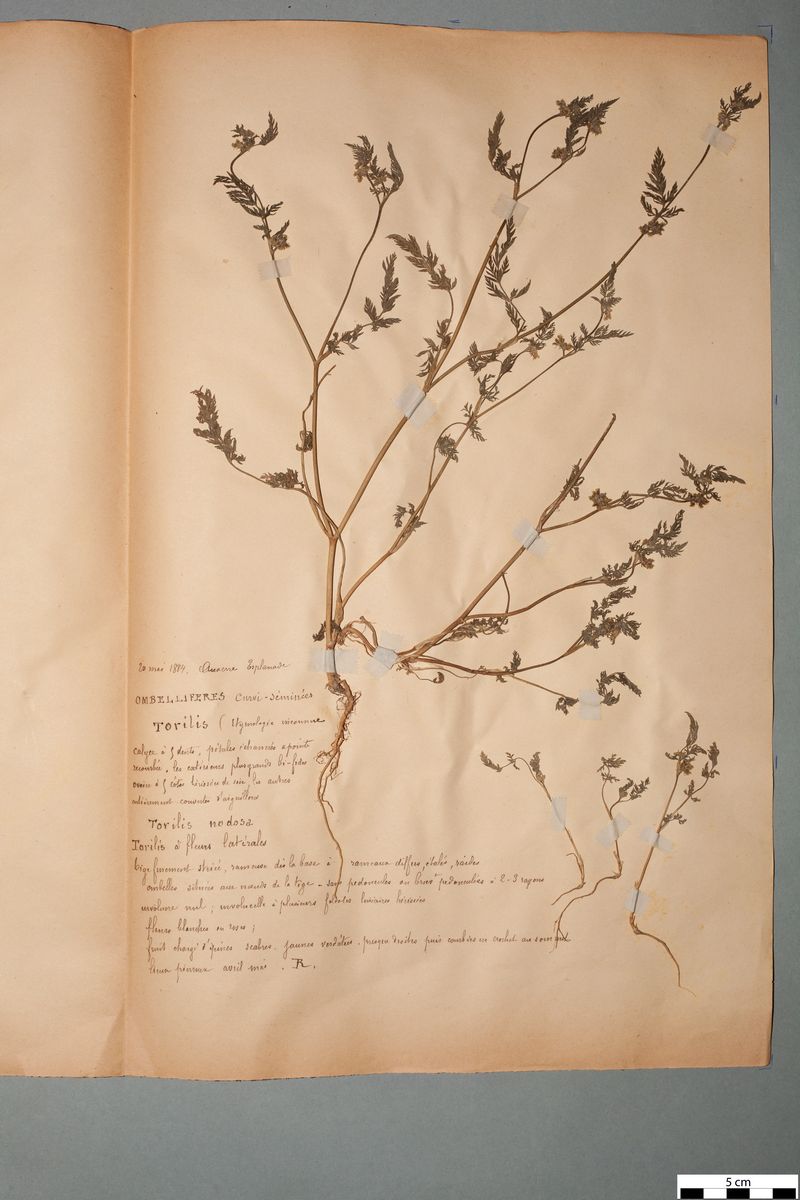 20 mai 1884. Auxerre Esplanade
OMBELLIFERES Curvi-séminées
Torilis (Etymologie inconnue
Calyce à 5 dents, pétales échancrés à pointe
recourbée, les extérieurs plus grands bi-fides
à 5 côtes hérissées de soie les autres
entièrement couvertes d'aiguillons
Torilis nodosa
Torilis à fleurs latérales
tige finement striée, rameuse dès la base à rameaux diffus, étalés, raides
ombelles situées aux nœuds de la tige - sans pedoncules ou brièvt pedonculées à 2-3 rayons
involucre nul; involucelle à plusieurs folioles linéaires hérissées
fleurs blanches ou roses;
fruit chargé d'épines scabres, jaunes verdâtres, presque droites puis courbées en crochet au sommet
lieux pierreux avril mai. R.
5 cm